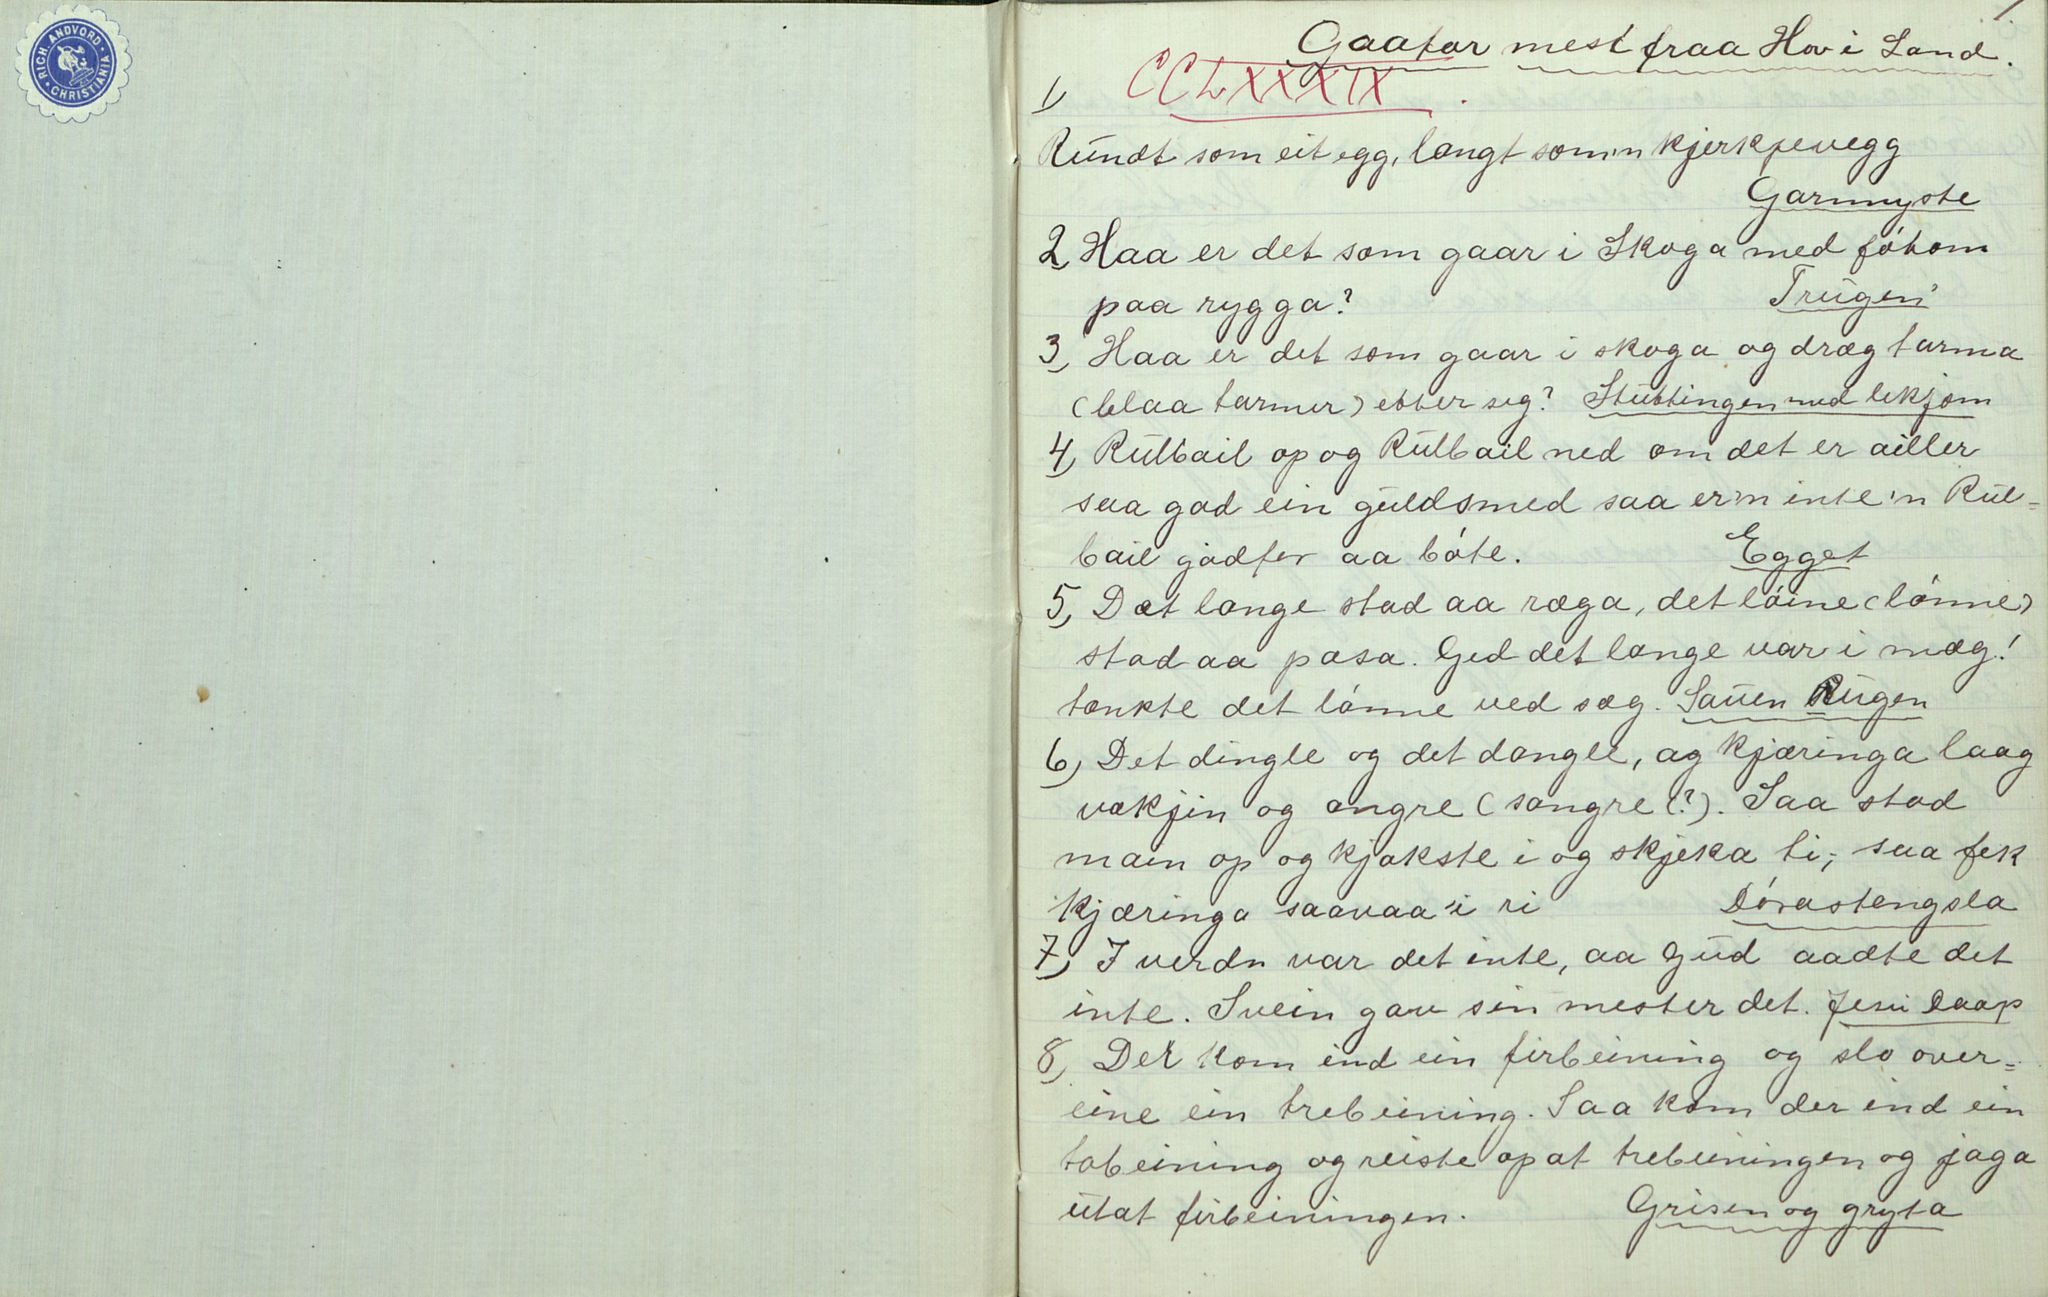 RICH. ANDVORD
CHRISTIANIA
1
Gaator mest fraa Hov i Land.
CCLXXXIX.
1,
Rundt som eit egg, langt som'n kjerkjevegg
Garnnyste
2, Haa er det som gaar i Skoga med fótom
paa rygga? Trugen
3, Haa er det som gaar i skoga og dræg tarma
(blaa tarmer) etter seg? Stuttingen med lekjom
4, Rulbail op og Rulbail ned om det er ailler
saa god ein guldsmed saa er'n inte'n Rul=
bail godfor aa bóte. Egget
5, Det lange stod aa ræga, det lóine (lónne)
stod aa pasa. Gid det lange var i mæg!
tænkte det lónne ved sæg. Sauen Rugen
6, Det dingle og det dangle, og kjæringa laag
vakjin og angre (sangre (?). Saa stod
main op og kjøkste i og skjeka ti; saa fek
kjæringa saavaa 'i ri Dórastengsla
7, I verdn var det inte, aa Gud aadte det
inte. Svein gav sin mester det. Jesu Daap
8, Der kom ind ein firbeining og slo over=
eine ein trebeining. Saa kom der ind ein
tobeining og reiste opat trebeiningen og jaga
utat firbeiningen. Grisen og gryta